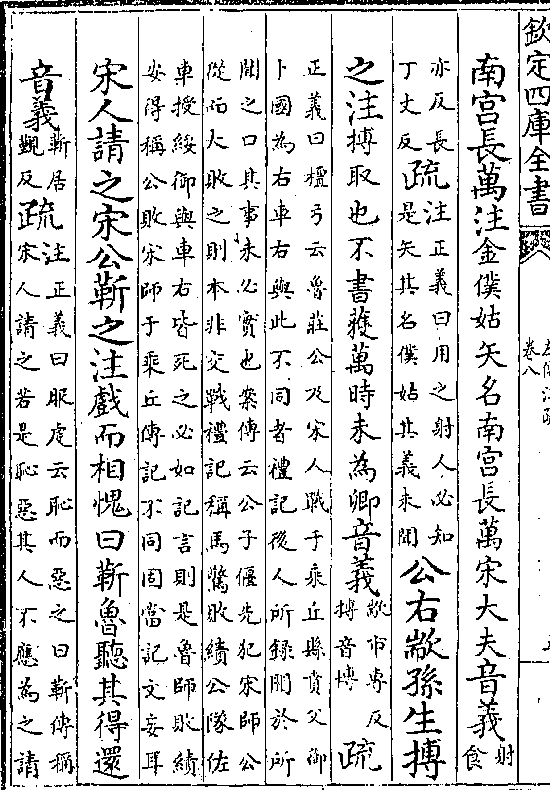 欽定四庫全書
左傳注疏
卷八
南宮長萬注金僕姑矢名南宮長萬宋大夫音義射食
亦反長
丁丈反
疏
注正義曰用之射人必知
是矢其名僕姑其義未聞
公右歂孫生搏
之注搏取也不書獲萬時未為卿音義
歂市專反
搏音博
疏
正義曰檀弓云魯莊公及宋人戰于乘丘縣賁父御
卜國為右車右與此不同者禮記後人所録聞於所
聞之口其事未必實也案傳云公子偃先犯宋師公
從而大敗之則本非交戰禮記稱馬驚敗績公隊佐
車授綏御與車右皆死之必如記言則是魯師敗績
安得稱公敗宋師于乘丘傳記不同固當記文妄耳
宋人請之宋公靳之注戲而相愧曰靳魯聽其得還
音義
靳居
覲反
疏
注正義曰服虔云恥而惡之曰靳傳稱
宋人請之若是恥惡其人不應為之請